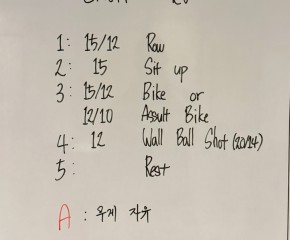 1: 15/12 Row
2: 15 Sit up
3: 15/12 Bike or
12/10 Assult Bike
4: 12 Wall Ball Shot (20/14)
5: Rest
A: 무게 자유